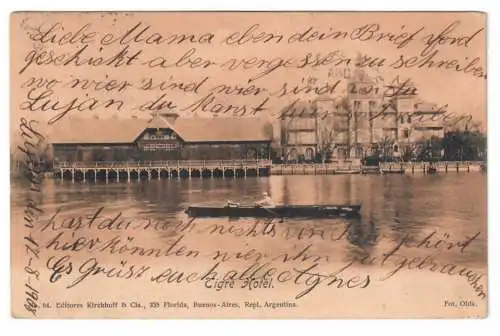 Liebe Mama eben dein Brief vord
geschikt aber vergessen zu schreiben
wo wier sind wier sind in
Lujan du kanst
hast du noch nichts von gehört
hier könnten wier ihn gut gebrauchen
Es grüsz euch alle Agnes
Lujan den 12-8-1908
Tigre Hotel.
64. Editores Kirchhoff & Cia., 835 Florida, Buenos-Aires, Repl. Argentina.
Fot. Olds.